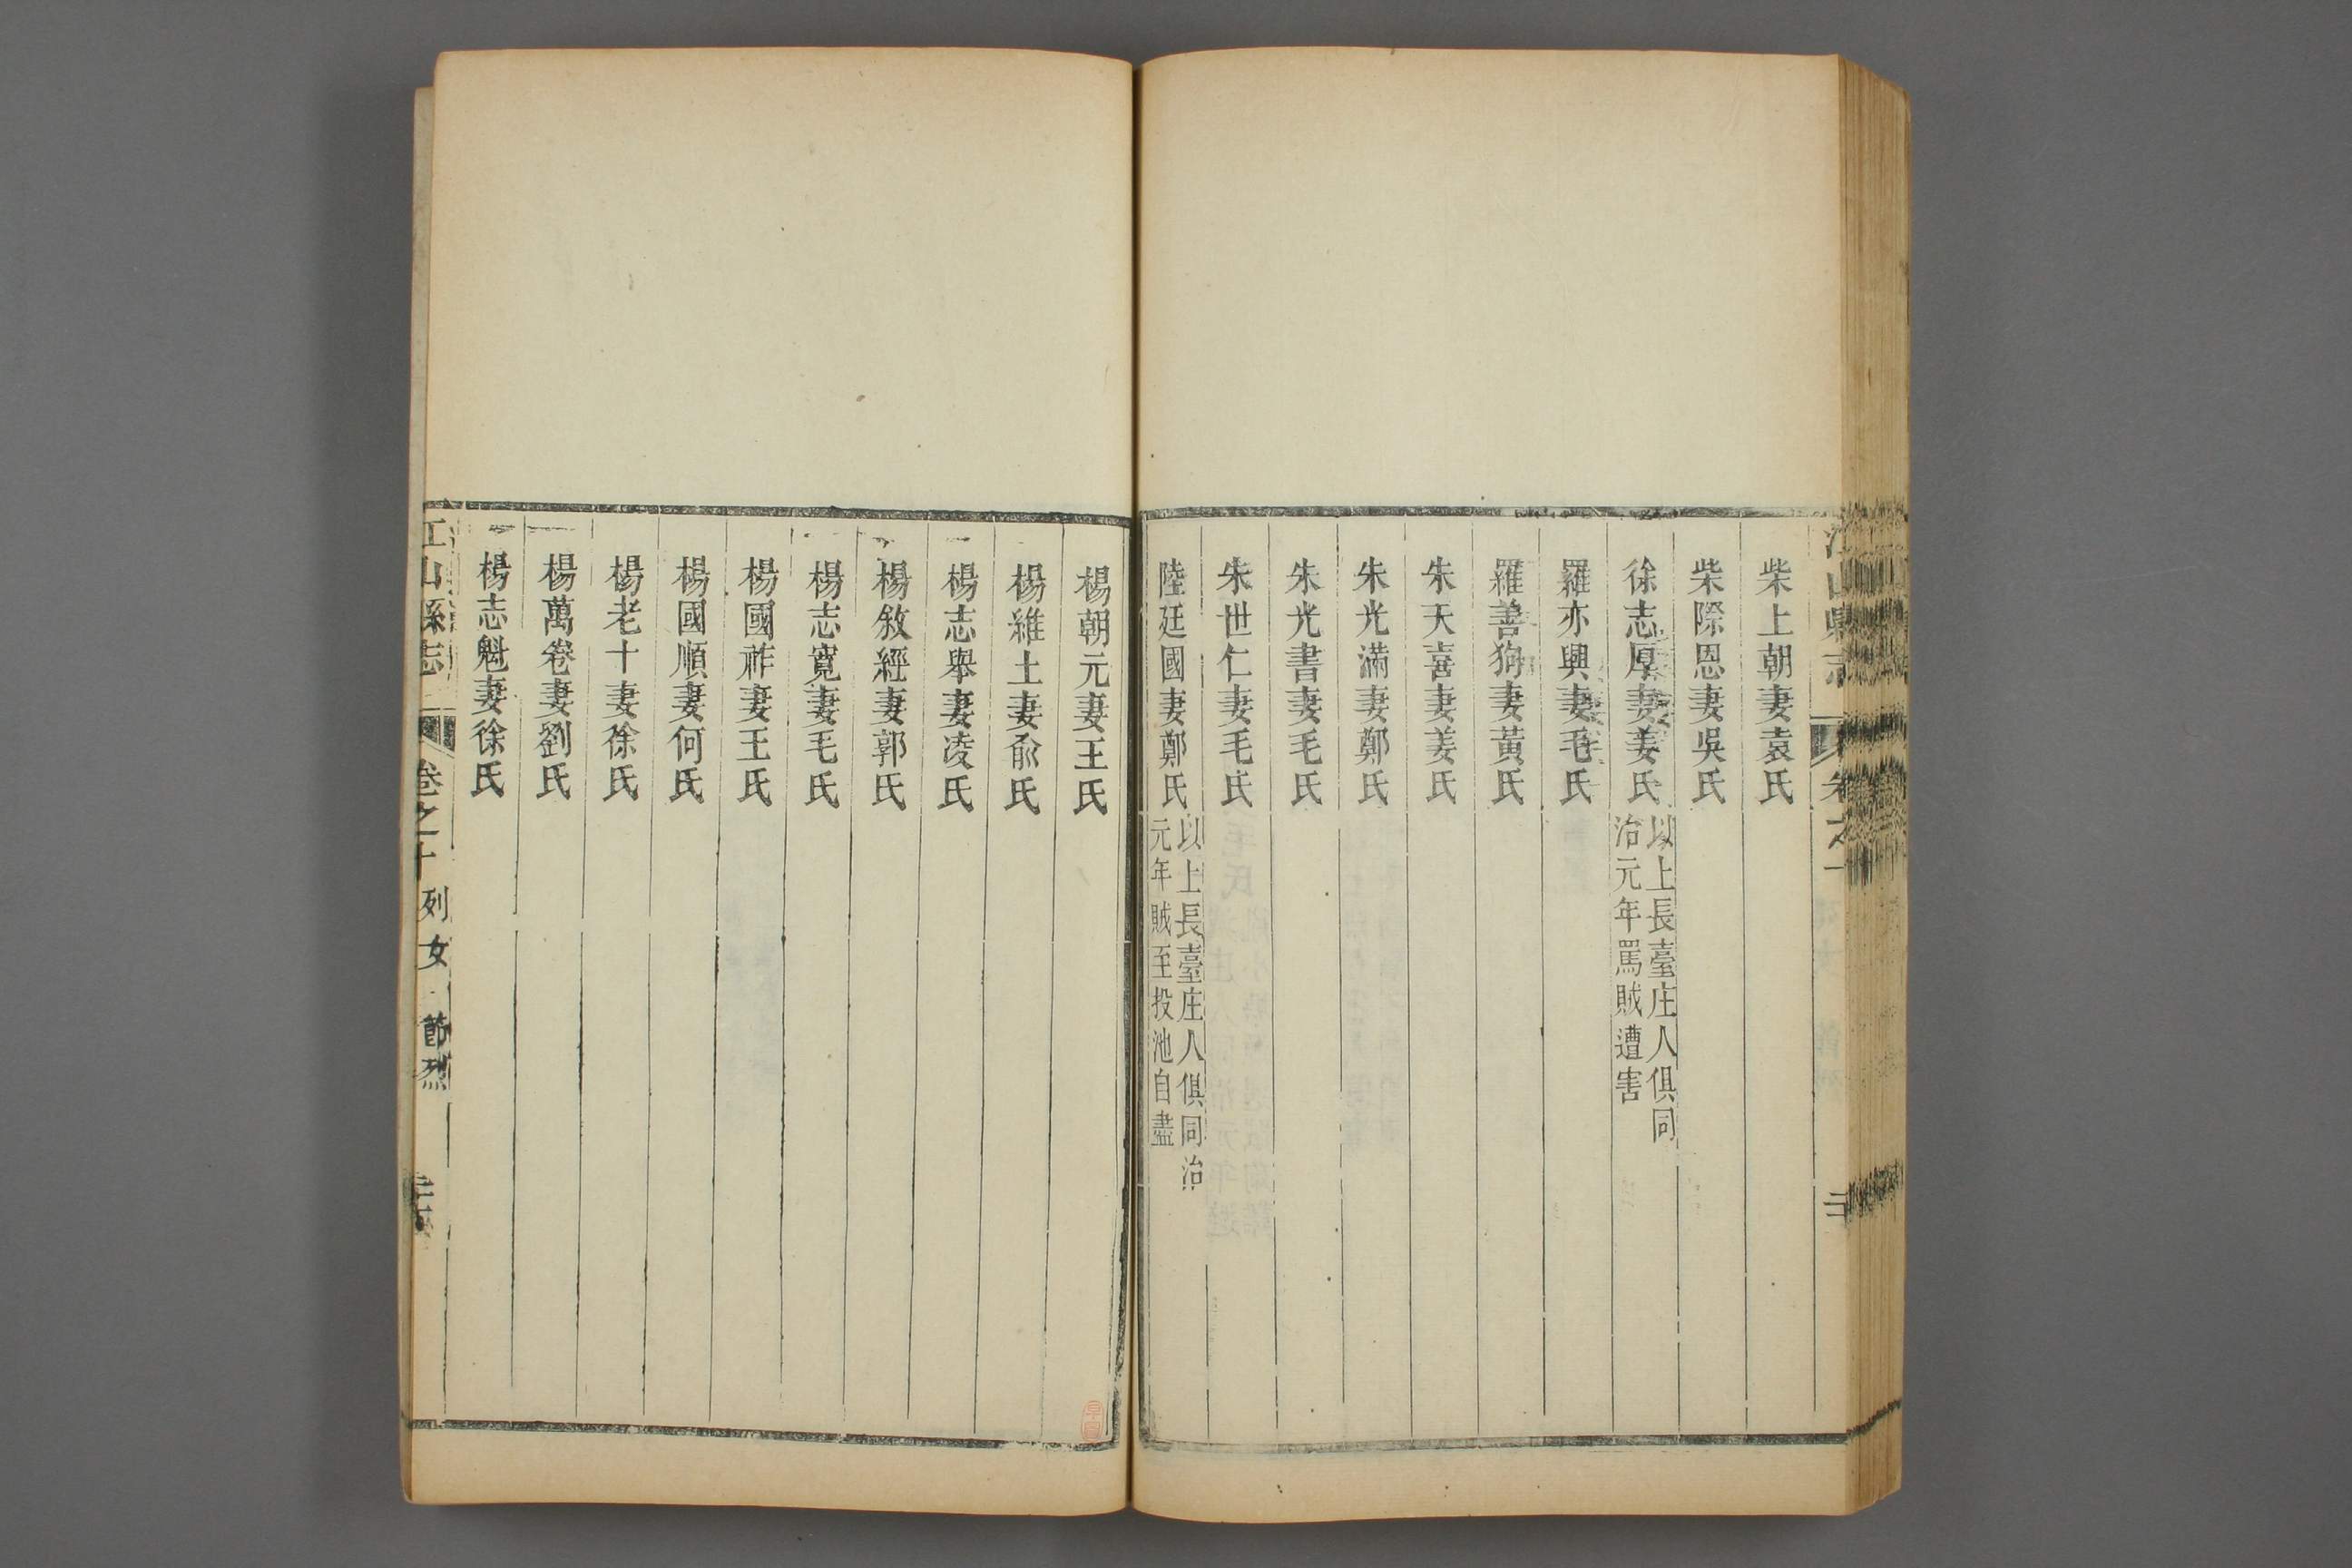 柴上朝妻袁氏
柴際恩妻吳氏
徐志厚妻姜氏以上長臺庄人俱同
治元年罵賊遭害
羅亦興妻毛氏
羅善狗妻黃氏
朱天喜妻姜氏
朱光滿妻鄭氏
朱光書妻毛氏
朱世仁妻毛氏
陸廷國妻鄭氏以上長臺庄人俱同治
元年賊至投池自盡
楊朝元妻王氏
楊維土妻俞氏
楊志舉妻凌氏
楊敘經妻郭氏
楊志寬妻毛氏
楊國祚妻王氏
楊國順妻何氏
楊老十妻徐氏
楊萬卷妻劉氏
楊志魁妻徐氏
江山縣志 卷之十 列女 節烈